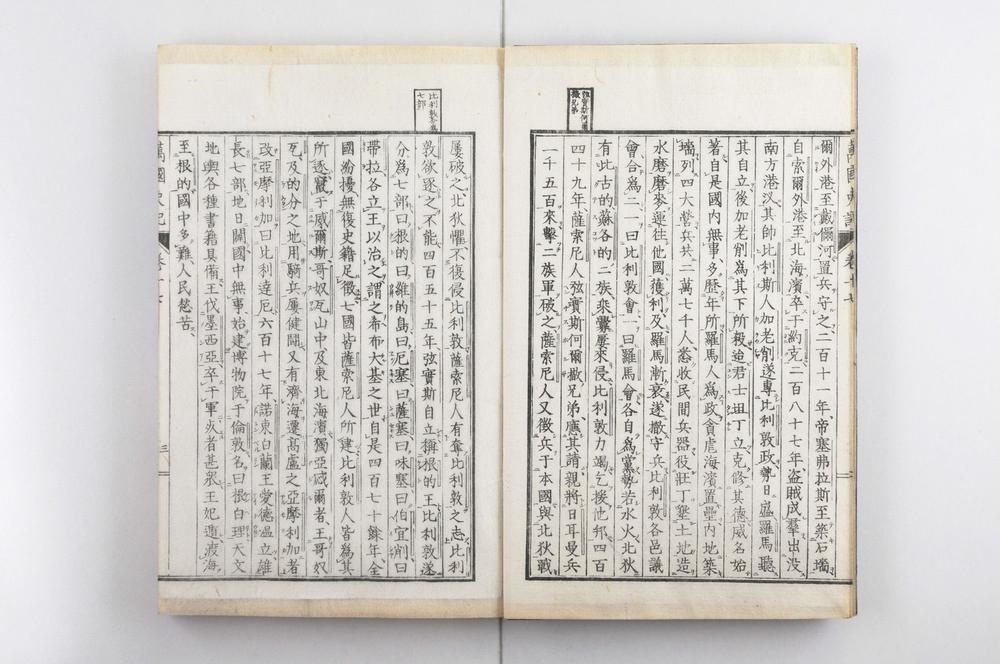 爾外港至戱儞河置兵守之二百十一年帝塞弗拉斯至築石墻
自索爾外港至北海濱卒于約克二百八十七年盜賊成羣出没
南方港汊其帥比利斯人加老削遂專比利敦政勢日盛羅馬聽
其自立後加老削爲其下所殺迨君士坦丁立克修其德威名始
著自是國内無事多歷年所羅馬人爲政貪虐海濱置壘内地築
墻列四大營兵共二萬七千人悉收民間兵器役壯丁墾土地造
水磨磨麥運往他國獲利及羅馬漸衰遂撤守兵比利敦各邑議
會合爲二一曰比利敦會一曰羅馬會各自爲黨勢若水火北狄
有此古的蘇各的二族乘釁屢來侵比利敦力竭乞援他邦四百
四十九年薩索尼人弦實斯何爾撒兄弟應其請親將日耳曼兵
一千五百來擊二族軍破之薩索尼人又徵兵于本國與北狄戰
比利敦分爲
七部
屢破之北狄懼不復侵比利敦薩索尼人有奪比利敦之志比利
敦欲逐之不能四百五十五年弦實斯自立稱根的王比利敦遂
分爲七部曰根的曰維的島曰厄塞曰薩塞曰味塞曰伯宜削曰
帶拉各立王以治之謂之希布大基之世自是四百七十餘年全
國紛擾無復史籍足徵七國皆薩索尼人所建比利敦人皆爲其
所逐竄于威爾斯哥奴瓦山中及東北海濱獨亞威爾者王哥奴
瓦及的分之地用騎兵屢健鬪又有濟海遷高盧之亞摩利加者
改亞摩利加曰比利達厄六百十七年諾東白蘭王愛德温立雄
長七部地日闢國中無事始建博物院于倫敦名曰根白理天文
地輿各種書籍具備王伐墨西亞卒于軍从者甚衆王妃遁渡海
至根的國中多難人民愁苦
三